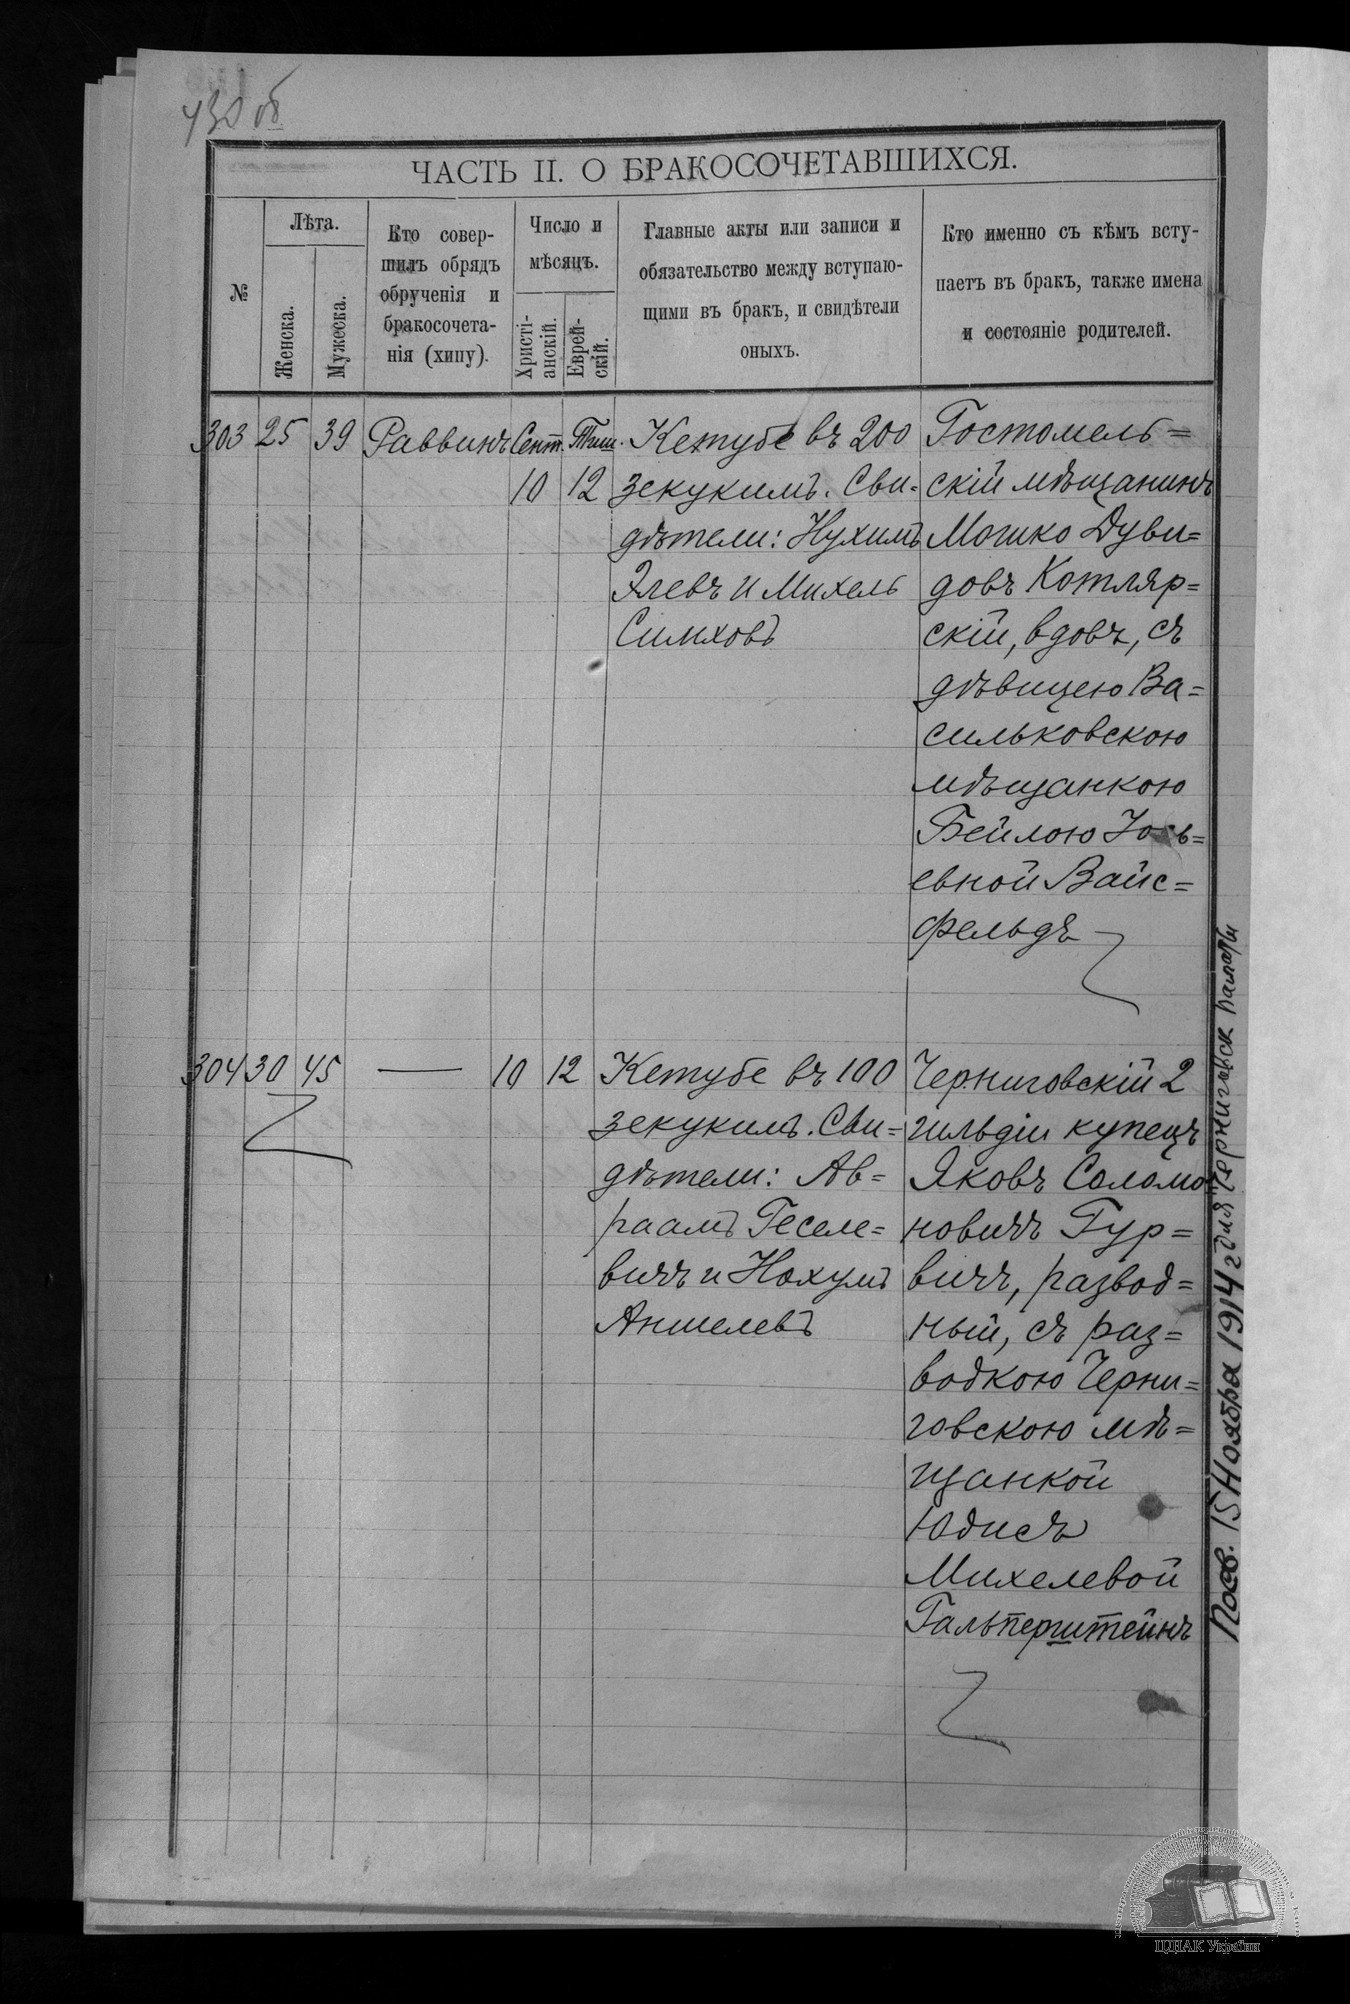 430 об
ЧАСТЬ II. О БРАКОСОЧЕТАВШИХСЯ.
№
Лѣта.
Женска.
Мужеска.
Кто совер-
шилъ обрядъ
обрученія и
бракосочета-
нія (хипу).
Число и
мѣсяцъ.
Христі-
анскій.
Еврей-
скій.
Главные акты или записи и
обязательство между вступаю-
щими въ бракъ, и свидѣтели
оныхъ.
Кто именно съ кѣмъ всту-
паетъ въ бракъ, также имена
и состояніе родителей.
303 25 39 Раввинъ Сент. Тиш.
10 12
Кетубе въ 200
зекукимъ. Сви-
дѣтели: Нухимъ
Элевъ и Михель
Симховъ
Гостомель=
скій мѣщанинъ
Мошко Дуви=
довъ Котляр=
скій, вдовъ, съ
дѣвицею Ва=
сильковскою
мѣщанкою
Бейлою Іось=
евной Вайс=
фельдъ
304 30 45 — 10 12
Кетубе въ 100
зекукимъ. Сви=
дѣтели: Ав=
раамъ Геселе=
вичъ и Нохумъ
Аншелевъ
Черниговскій 2
гильдіи купецъ
Яковъ Соломо
новичъ Гур=
вичъ, развод=
ный, съ раз=
водкою Черни=
говскою мѣ=
щанкой
Юдисъ
Михелевой
Гальперштейнъ
15 Ноября 1914 г для Черниговск палаты
ЦДІАК України